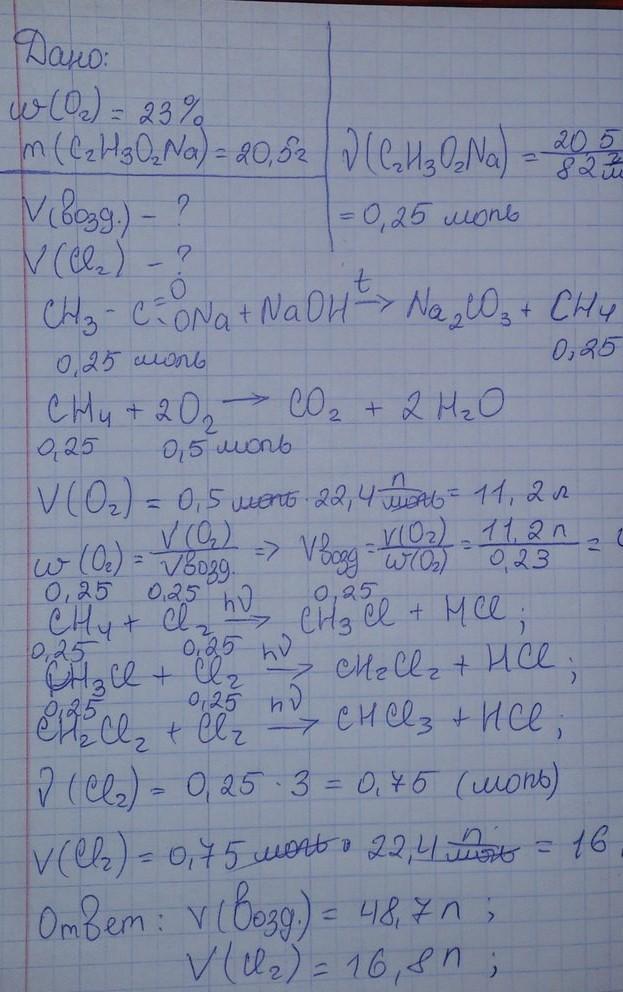 Дано:
w(O₂) = 23%
m(C₂H₃O₂Na) = 20,5г
V(возд.) - ?
V(Cl₂) - ?
ν(C₂H₃O₂Na) = 20,5 / 82 г/м
= 0,25 моль
CH₃ - C =O ONa + NaOH t→ Na₂CO₃ + CH₄
0,25 моль 0,25
CH₄ + 2O₂ → CO₂ + 2H₂O
0,25 0,5 моль
V(O₂) = 0,5 моль · 22,4 л/моль = 11,2 л
w(O₂) = V(O₂)/Vвозд. => Vвозд = V(O₂)/w(O₂) = 11,2 л/0,23 =
0,25 0,25 0,25
CH₄ + Cl₂ hν→ CH₃Cl + HCl;
0,25 0,25
CH₃Cl + Cl₂ hν→ CH₂Cl₂ + HCl;
0,25 0,25
CH₂Cl₂ + Cl₂ hν→ CHCl₃ + HCl;
ν(Cl₂) = 0,25 · 3 = 0,75 (моль)
V(Cl₂) = 0,75 моль · 22,4 л/моль = 16
Ответ: V(возд.) = 48,7 л;
V(Cl₂) = 16,8 л;